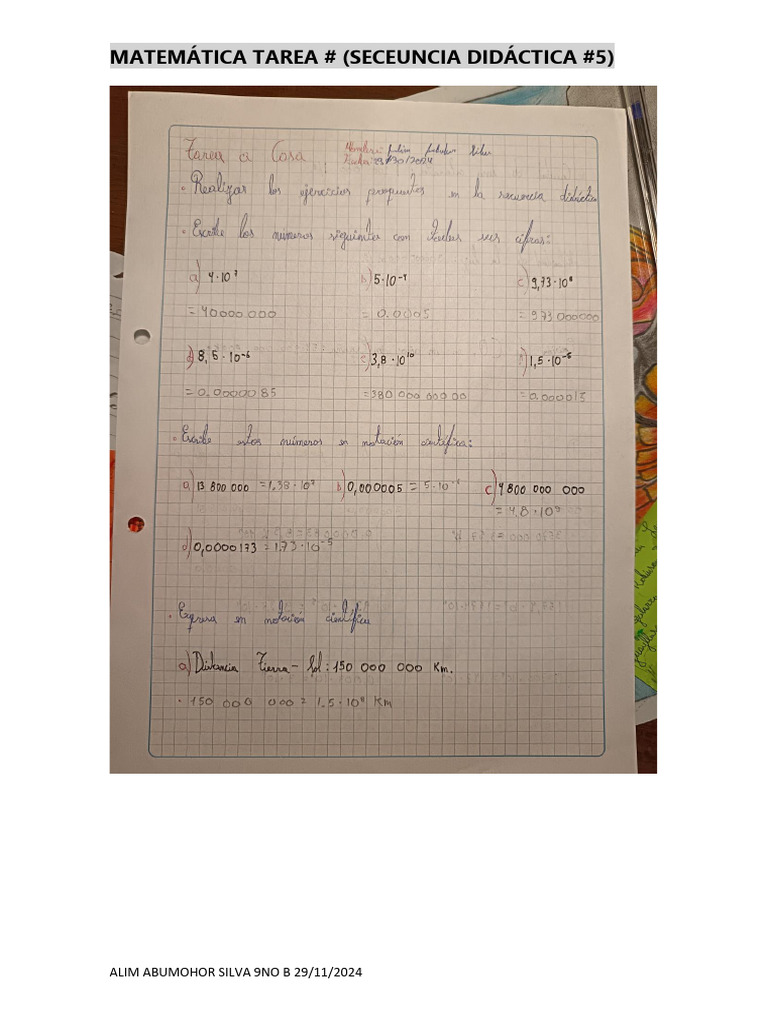 MATEMÁTICA TAREA # (SECEUNCIA DIDÁCTICA #5)
Tarea a Casa
Nombre: Silva
Fecha: /30/2024
• Realizar los ejercicios propuestos en la secuencia didáctica
• Escribe los números siguientes con todas sus cifras:
a) 4·10⁷ b) 5·10⁻⁴ c) 9,73·10⁸
= 40000 000 = 0.0005 = 973 000000
d) 8,5·10⁻⁶ e) 3,8·10¹⁰ f) 1,5·10⁻⁵
= 0.0000085 = 380 000 000 00 = 0.000015
• Escribe estos números en notación científica:
a) 13 800 000 = 1.38·10⁷ b) 0,000005 = 5·10⁻⁶ c) 4 800 000 000
= 4.8·10⁹
d) 0,0000173 = 1.73·10⁻⁵
• Expresa en notación científica
a) Distancia Tierra - Sol: 150 000 000 Km.
• 150 000 000 = 1.5·10⁸ Km
ALIM ABUMOHOR SILVA 9NO B 29/11/2024